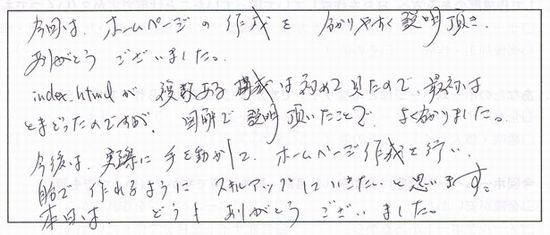 今回は、ホームページの作成を分りやすく説明頂き、
ありがとうございました。
index.htmlが複数ある構成は初めて見たので、最初は
とまどったのですが、図解で説明頂いたことで、よく分りました。
今後は、実際に手を動かして、ホームページ作成を行い、
自分で作れるようにスキルアップしていきたいと思います。
本日は、どうもありがとうございました。